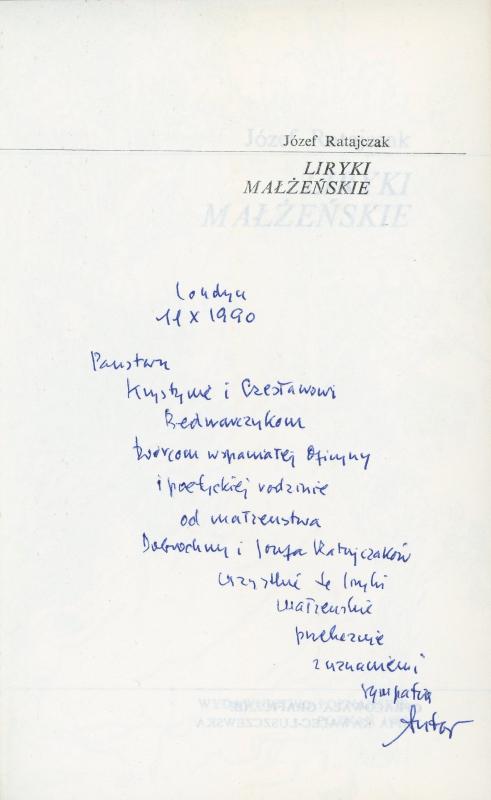 Józef Ratajczak
LIRYKI
MAŁŻEŃSKIE
Londyn
11 X 1990
Państwu
Krystynie i Czesławowi
Bednarczykom
twórcom wspaniałej Oficyny
i poetyckiej rodzinie
od małżeństwa
Dobrochny i Józefa Ratajczaków
wszystkie te liryki
małżeńskie
przekazuje
z uznaniem i
sympatią
Autor